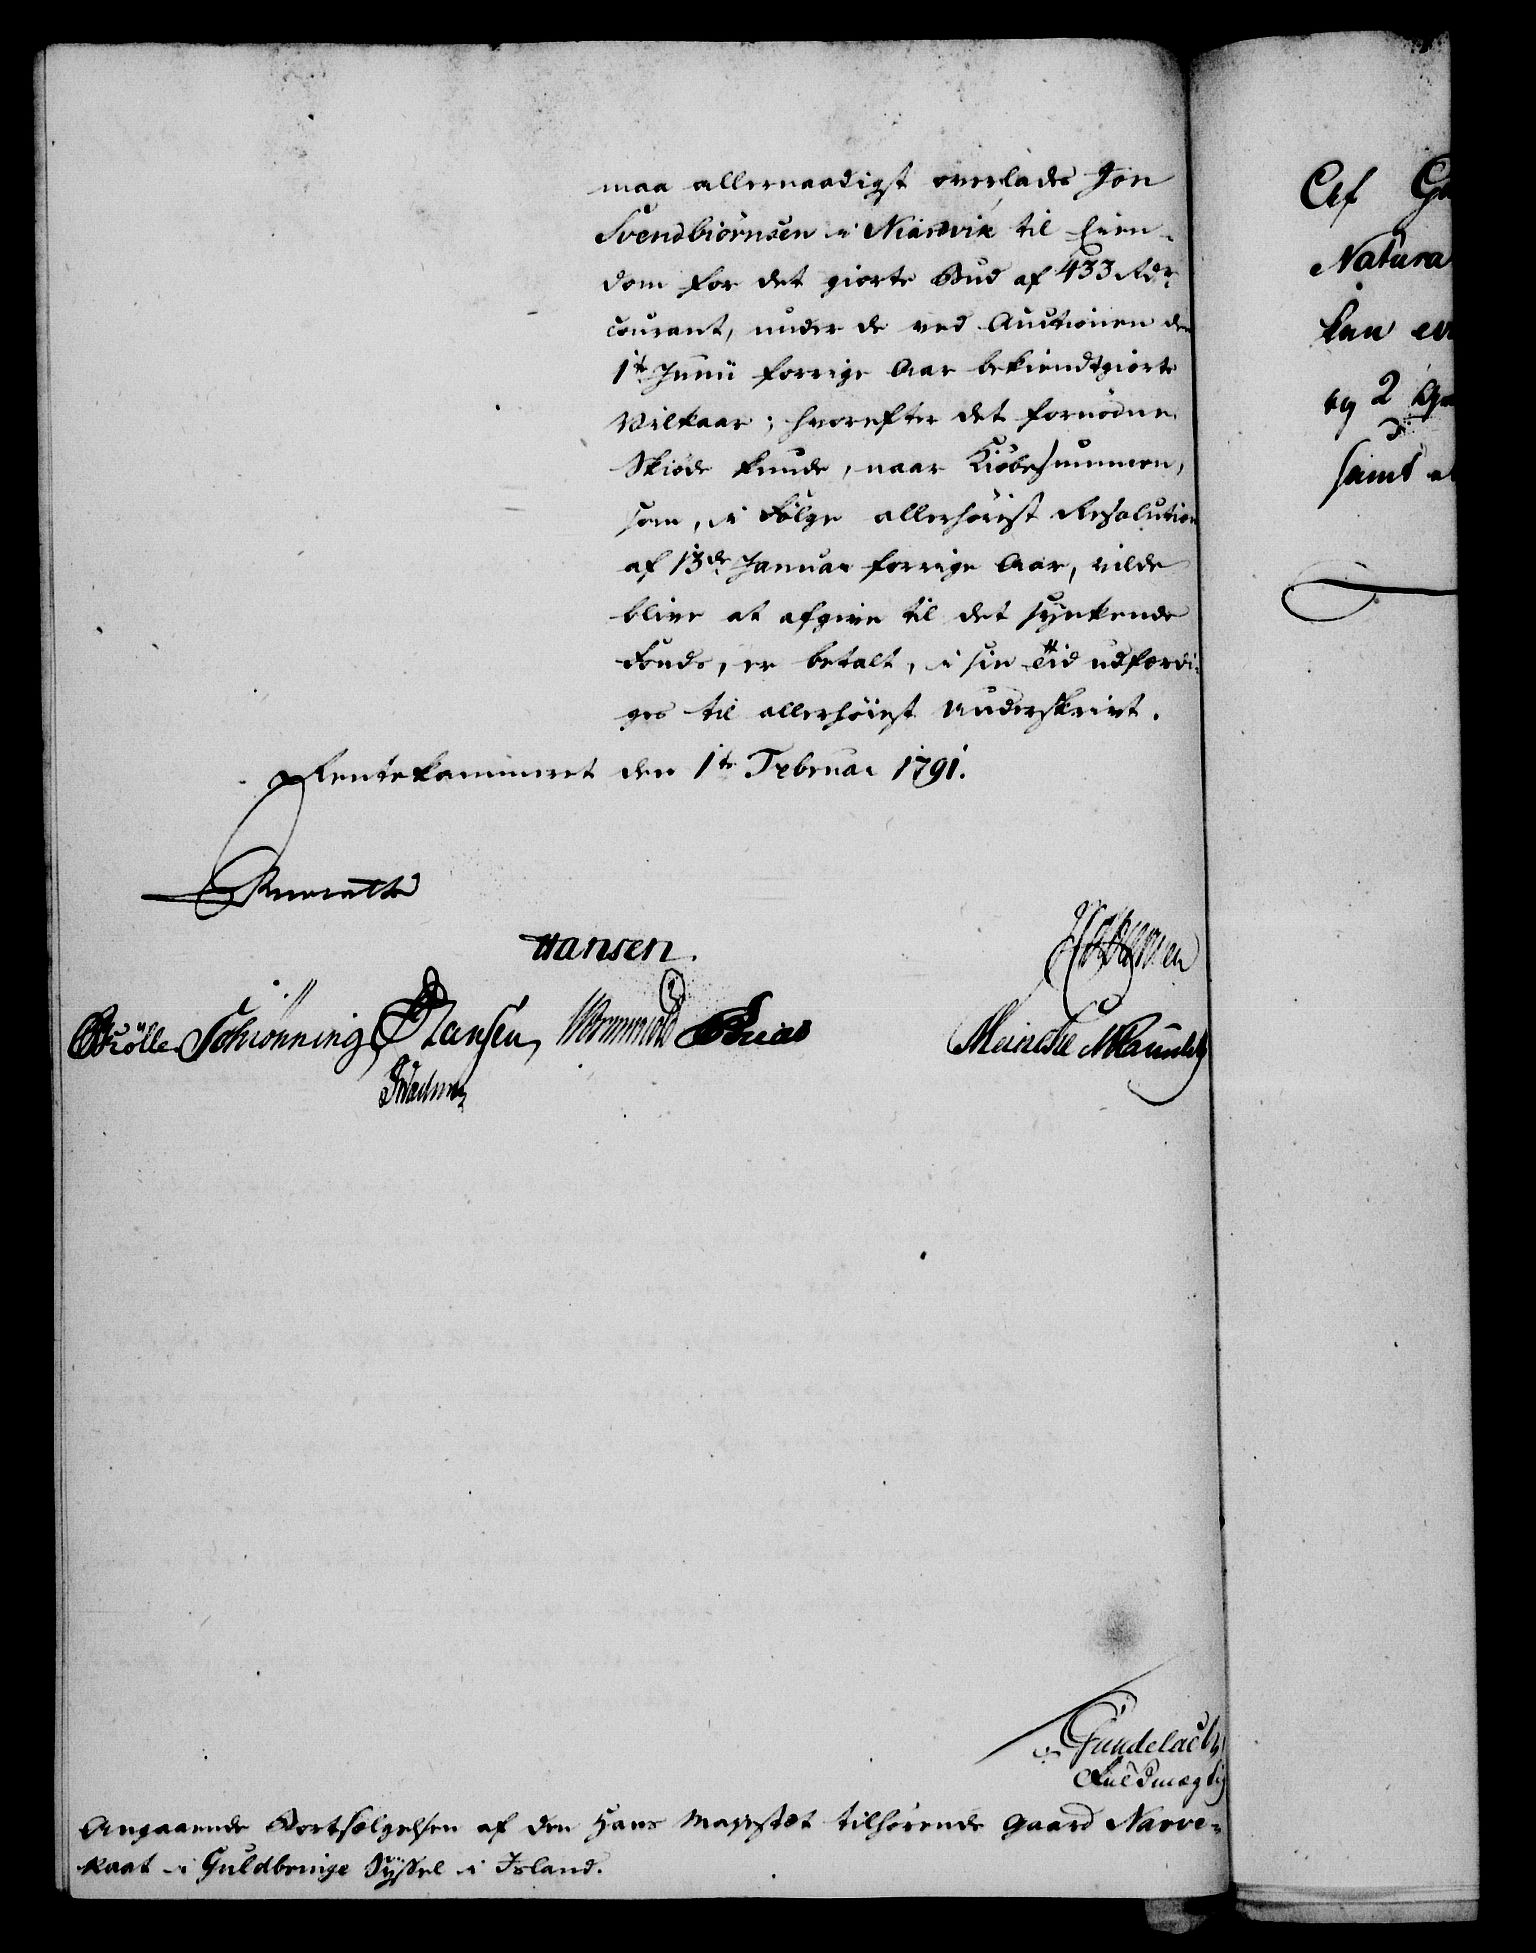 maa allernaadigst overlades Jon
Svendbiörnsen i Niarvik til Eien-
dom for det giorte Bud af 433 Rdr
Courant, under de ved Auctionen den
1te Junii forrige Aar bekiendtgiorte
Vilkaar; hvorefter det fornödne
Skiöde kunde, naar Kiöbesummen,
som, i Fölge allerhöiest Resolution
af 13de Januar forrige Aar, vilde
blive at afgive til det synkende
Fonds, er betalt, i sin Tid udfærdi-
ges til allerhöiest Underskrivt.
Rentekammeret den 1te Februar 1791.
Hansen.
Schiönning Hansen
Meincke
Gundelach
Fuldmægtig
Angaaende Bortsælgelsen af den Hans Majestæt tilhörende Gaard Narve-
kaat i Guldbringe Syssel i Island.
Af
Natura
kan
og 2
samt